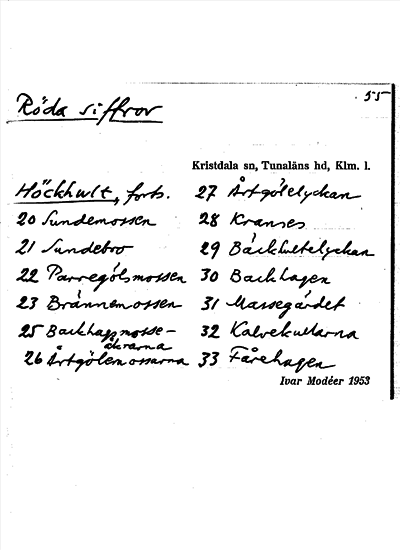 55
Röda siffror
Kristdala sn, Tunaläns hd, Klm. l.
Höckhult, forts.
20 Sundemossen
21 Sundebro
22 Parregölsmossen
23 Brännemossen
25 Backhagsmosse-
åkrarna
26 Årtgölemossarna
27 Årtgölelyckan
28 Kranses
29 Bäckhultelyckan
30 Backhagen
31 Massegärdet
32 Kalvekullarna
33 Fårehagen
Ivar Modéer 1953